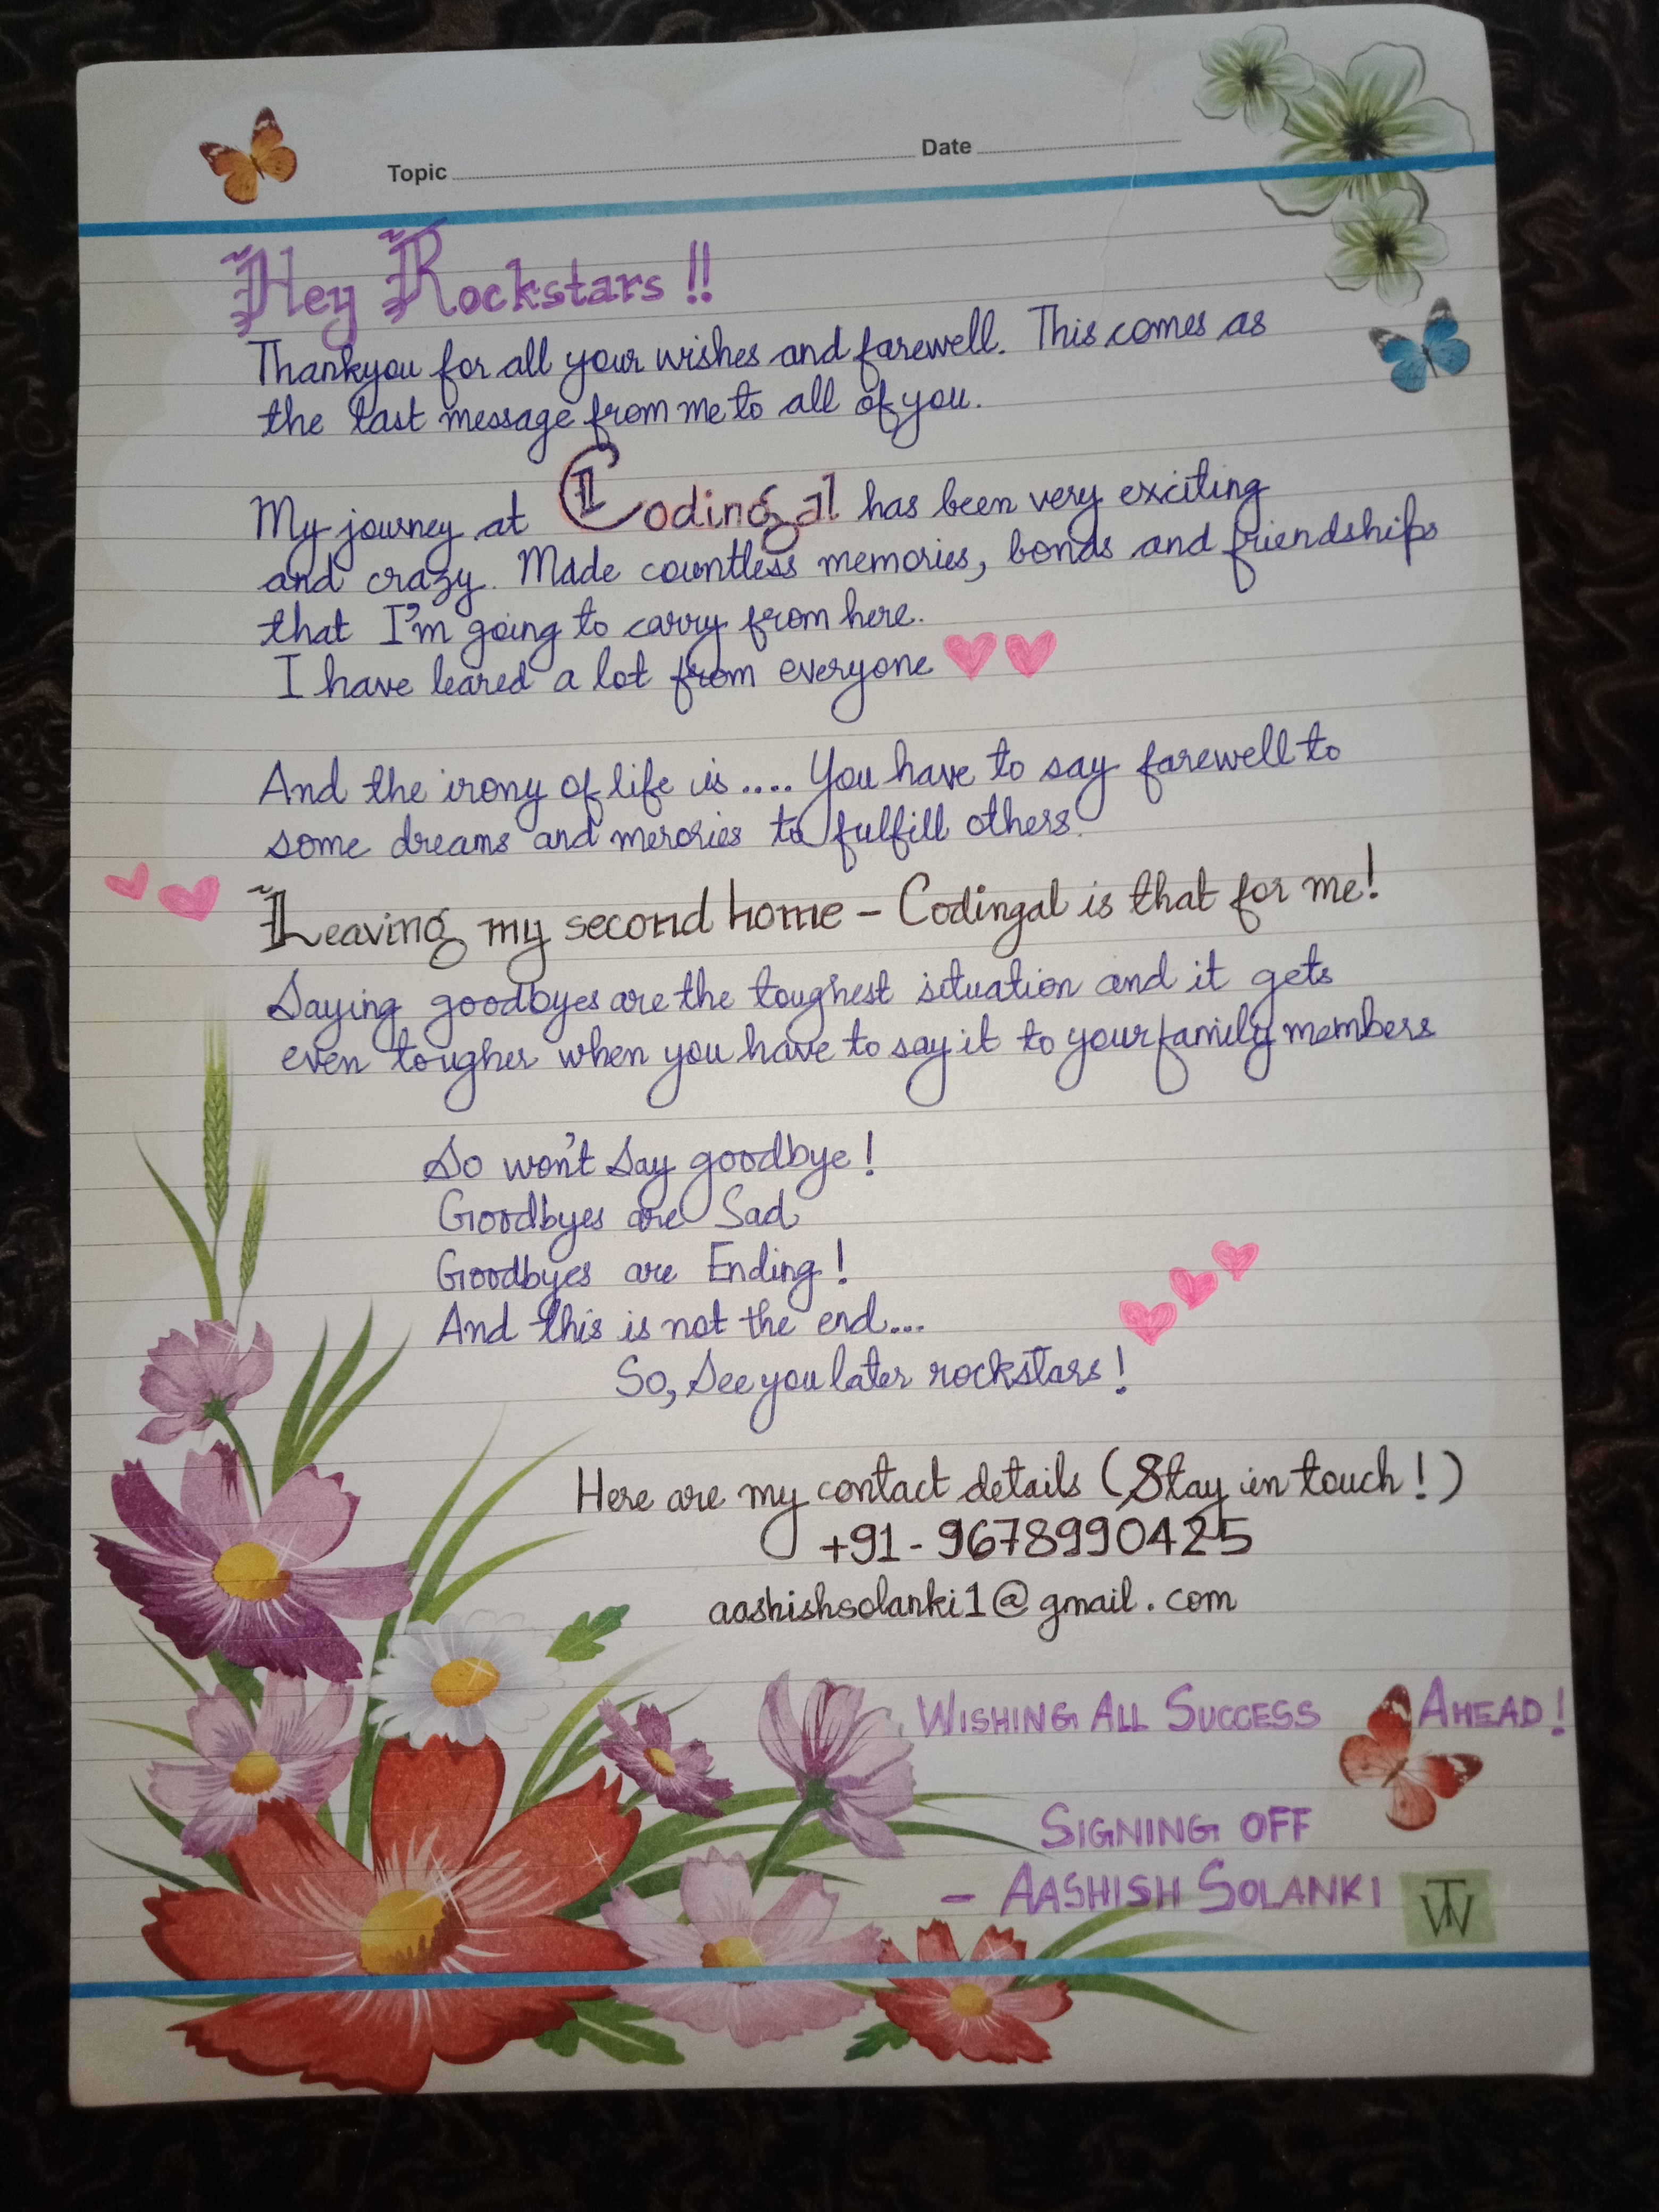 Topic Date
Hey Rockstars !!
Thankyou for all your wishes and farewell. This comes as
the last message from me to all of you.
My journey at Codingal has been very exciting
and crazy. Made countless memories, bonds and friendships
that I'm going to carry from here.
I have leared a lot from everyone
And the irony of life is .... You have to say farewell to
some dreams and merories to fulfill others.
Leaving my second home - Codingal is that for me!
Saying goodbyes are the toughest situation and it gets
even tougher when you have to say it to your family members
So won't Say goodbye!
Goodbyes are Sad
Goodbyes are Ending!
And this is not the end...
So, See you later rockstars!
Here are my contact details (Stay in touch!)
+91-9678990425
aashishsolanki1@gmail.com
WISHING ALL SUCCESS AHEAD!
SIGNING OFF
- AASHISH SOLANKI